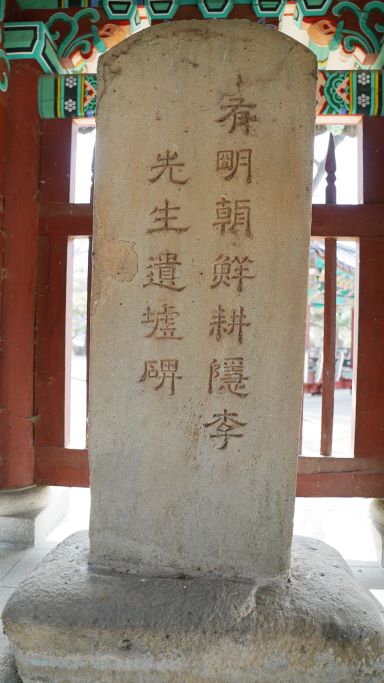 有明朝鮮耕隱李
先生遺墟碑